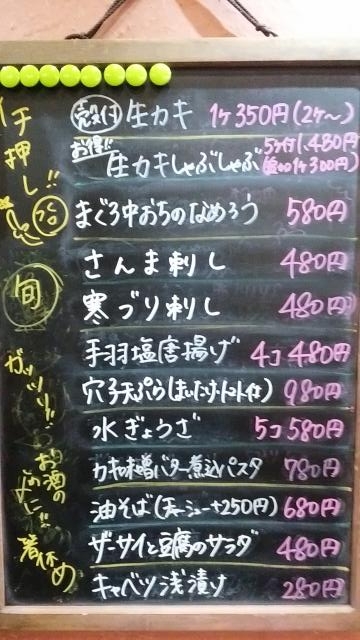 イチ押し!!
殻付 生カキ 1ケ 350円(2ケ〜)
お得!! 生カキしゃぶしゃぶ 5ケ付 1,480円
1ケ 300円)
まぐろ中おちのなめろう 580円
さんま刺し 480円
旬
寒ブリ刺し 480円
手羽塩唐揚げ 4コ 480円
穴子天ぷら(まいたけ・トマト付) 980円
ガッツリ!!
水ぎょうざ 5コ 580円
カキの味噌バター煮込パスタ 780円
お酒の
油そば(チャーシュー+250円) 680円
ザーサイと豆腐のサラダ 480円
箸休め
キャベツ浅漬け 280円